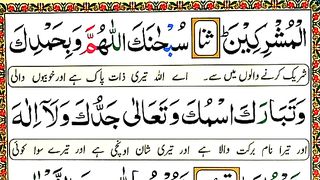 الْمُشْرِكِيْنَ ثنا سُبْحٰنَكَ اللّٰهُمَّ وَبِحَمْدِكَ
شریک کرنے والوں میں سے۔ اے اللہ تیری ذات پاک ہے اور خوبیوں والی
وَتَبَارَكَ اسْمُكَ وَتَعَالٰى جَدُّكَ وَلَآ اِلٰهَ
اور تیرا نام برکت والا ہے اور تیری شان اونچی ہے اور تیرے سوا کوئی